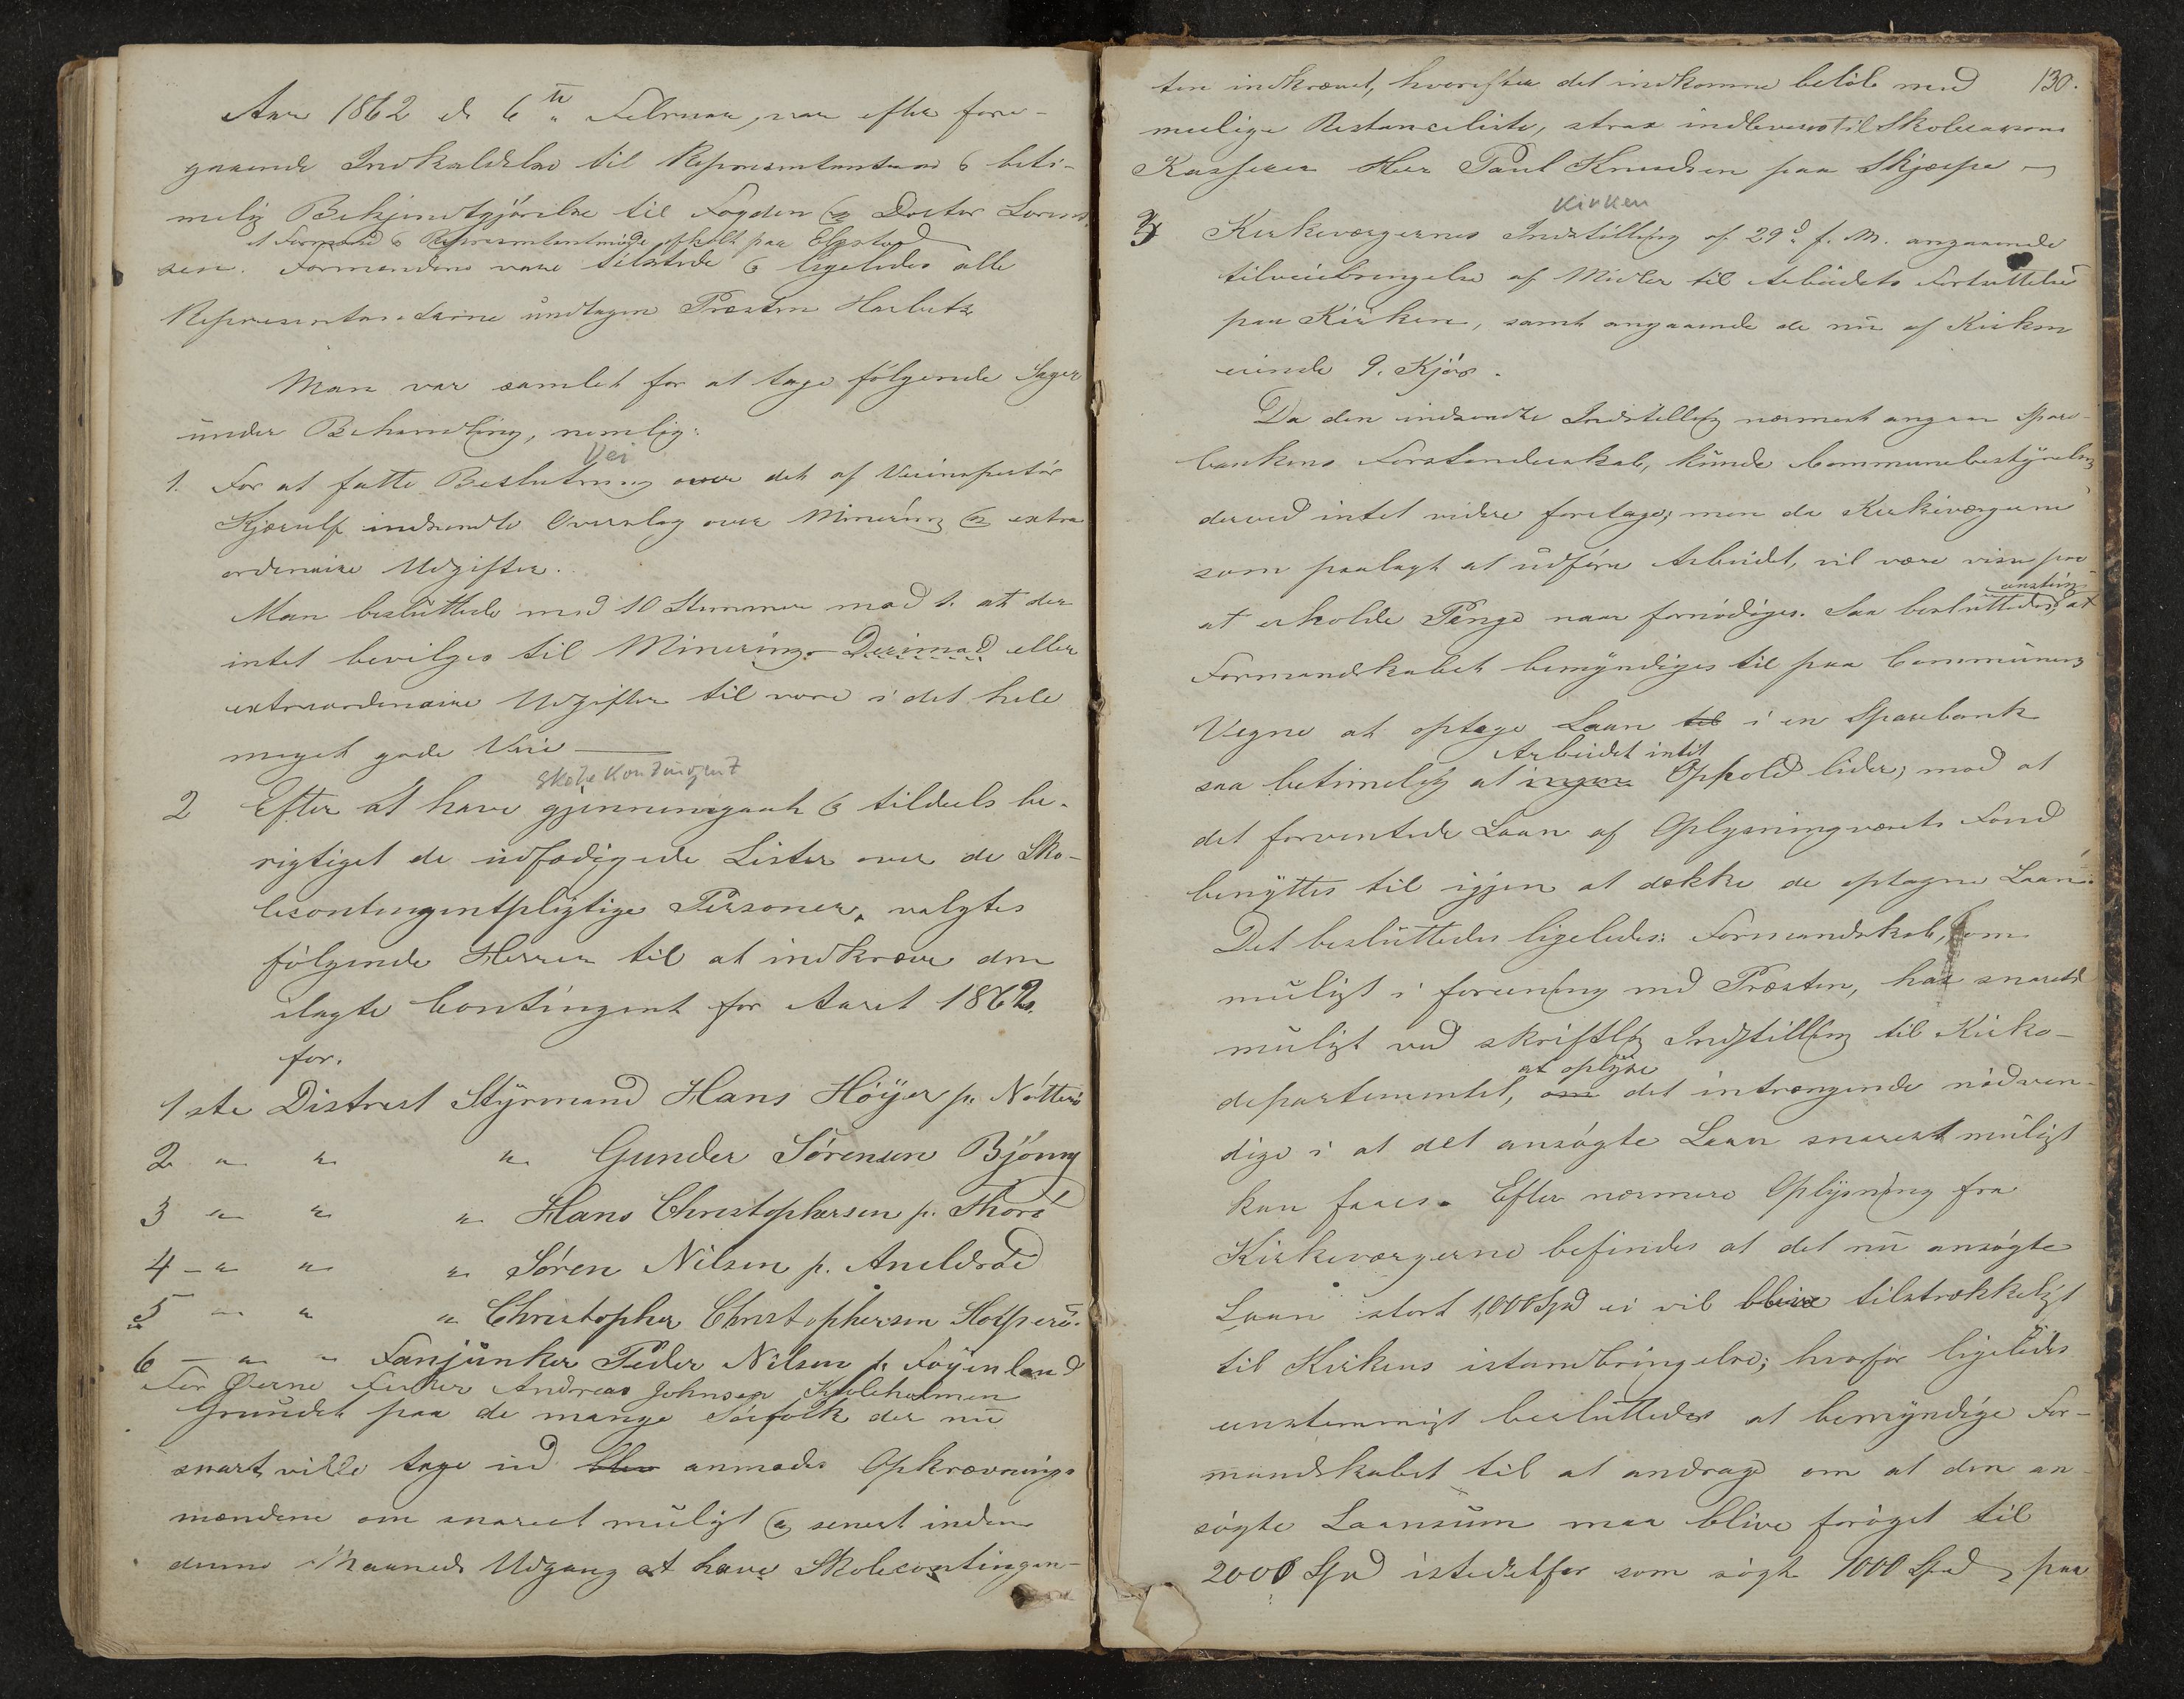 Aar 1862 d. 6te Februar, var efter fore-
gaaende Indkaldelse til Repræsentanterne & beti-
melig Bekjendtgjörelse til Fogden & Doctor Lorent-
et Formænd & Repræsentantmöde afholdt paa Elgestad
sen. Formændene vare tilstede & ligeledes alle
Repræsentanterne undtagen Præsten Harbitz
Man var samlet for at tage fölgende Sager
under Behandling, nemlig:
Vei
1. For at fatte Beslutning over det af Veiinspectör
Kjærulf indsendte Overslag over Minering & extra
ordinaire Udgifter.
Man besluttede med 10 Stemmer mod 1. at der
intet bevilges til Minering. Derimod eller
extraordinaire Udgifter til vore i det hele
meget gode Veie
Skolekontingent
2 Efter at have gjennemgaaet & tildeels be-
rigtiget de udfærdigede Lister over de Sko-
lecontingentpligtige Personer, valgtes
fölgende Herrer til at indkræve den
ilagte Contingent for Aaret 1862.
for.
1ste District Styrmand Hans Höyer p. Nötterö
2 " " " Gunder Sörensen Bjönng
3 " " " Hans Christophersen p. Thorö
4 " " " Sören Nilsen p. Aneldröd
5 " " " Christopher Christophersen Holperö.
6 " " Fanjunker Peder Nilsen p. Föyenland
For Öerne Fisker Andreas Johnsen Kjöleholmen
Grundet paa de mange Söefolk der nu
snart ville tage ud blev anmodes Opkrævnings
mændene om snarest muligt & senest inden
denne Maaneds Udgang at have Skolecontingen-
130.
ten indkrævet, hvorefter det indkomne belöb med
muelige Restanceliste, strax indleveres til Skolecassens
Kasserer Herr Paul Knudsen paa Skjerpe
Kirken
3 Kirkeværgernes Indstilling af 29d f. M. angaaende
tilveiebringelse af Midler til Arbeidets Fortsættelse
paa Kirken, samt angaaende de nu af Kirken
eiende 9. Kjör.
Da den indsendte Indstilling nærmest angaar Spare-
bankens Forstanderskab, kunde Communebestyrelsen
derved intet videre foretage; men da Kirkeværgerne
som paalagt at udföre Arbeidet, vil være visse paa
at erholde Penge naar fornödiges. Saa besluttedes enstem: at
Formandskabet bemyndiges til paa Communens
Vegne at optage Laan til i en Sparebank
Arbeidet intet
saa betimelig at ingen Ophold lider; mod at
det forventede Laan af Oplysningvæsets Fond
benyttes til igjen at dække de optagne Laan.
Det besluttedes ligeledes: Formandskab, som
muligt i forening med Præsten, har snarest
muligt ved skriftlig Indstilling til Kirke-
at oplyse
departementet, om det intrængende nödven-
dige i at det ansögte Laan snarest muligt
kan faaes. Efter nærmere Oplysning fra
Kirkeværgerne befindes at det nu ansögte
Laan stort 1,000 Spd ei vil blive tilstrækkeligt
til Kirkens istandbringelse; hvorfor ligeledes
enstemmigt besluttedes at bemyndige For-
mandskabet til at andrage om at den an-
sögte Laansum maa blive foröget til
2000 Spd istedetfor som sögt 1000 Spd, paa